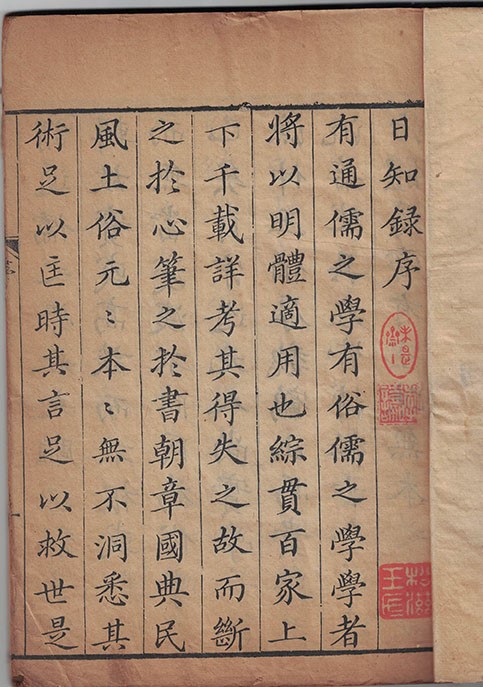 日知録序
有通儒之學有俗儒之學學者
將以明體適用也綜貫百家上
下千載詳考其得失之故而斷
之於心筆之於書朝章國典民
風土俗元〻本〻無不洞悉其
術足以匡時其言足以救世是